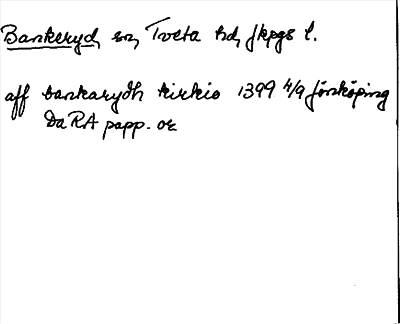 Bankeryd, sn, Tveta hd, Jkpgs l.
aff bankarydh kirkio 1399 4/9 Jönköping
DaRA papp. or